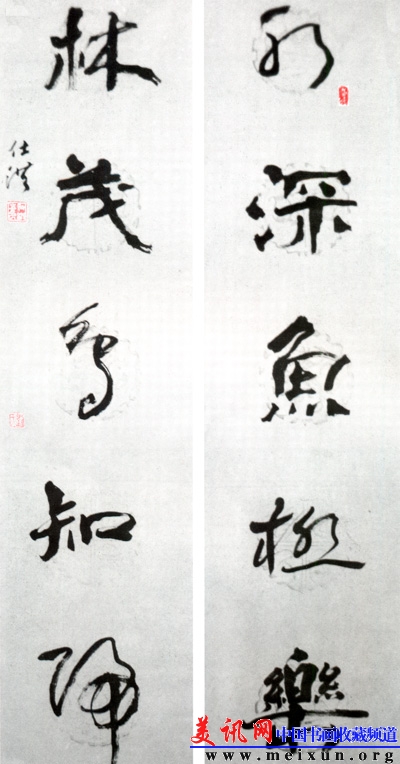 水深魚極樂
林茂鸟知歸
仕溁
美讯网 中国书画收藏频道
www.meixun.org